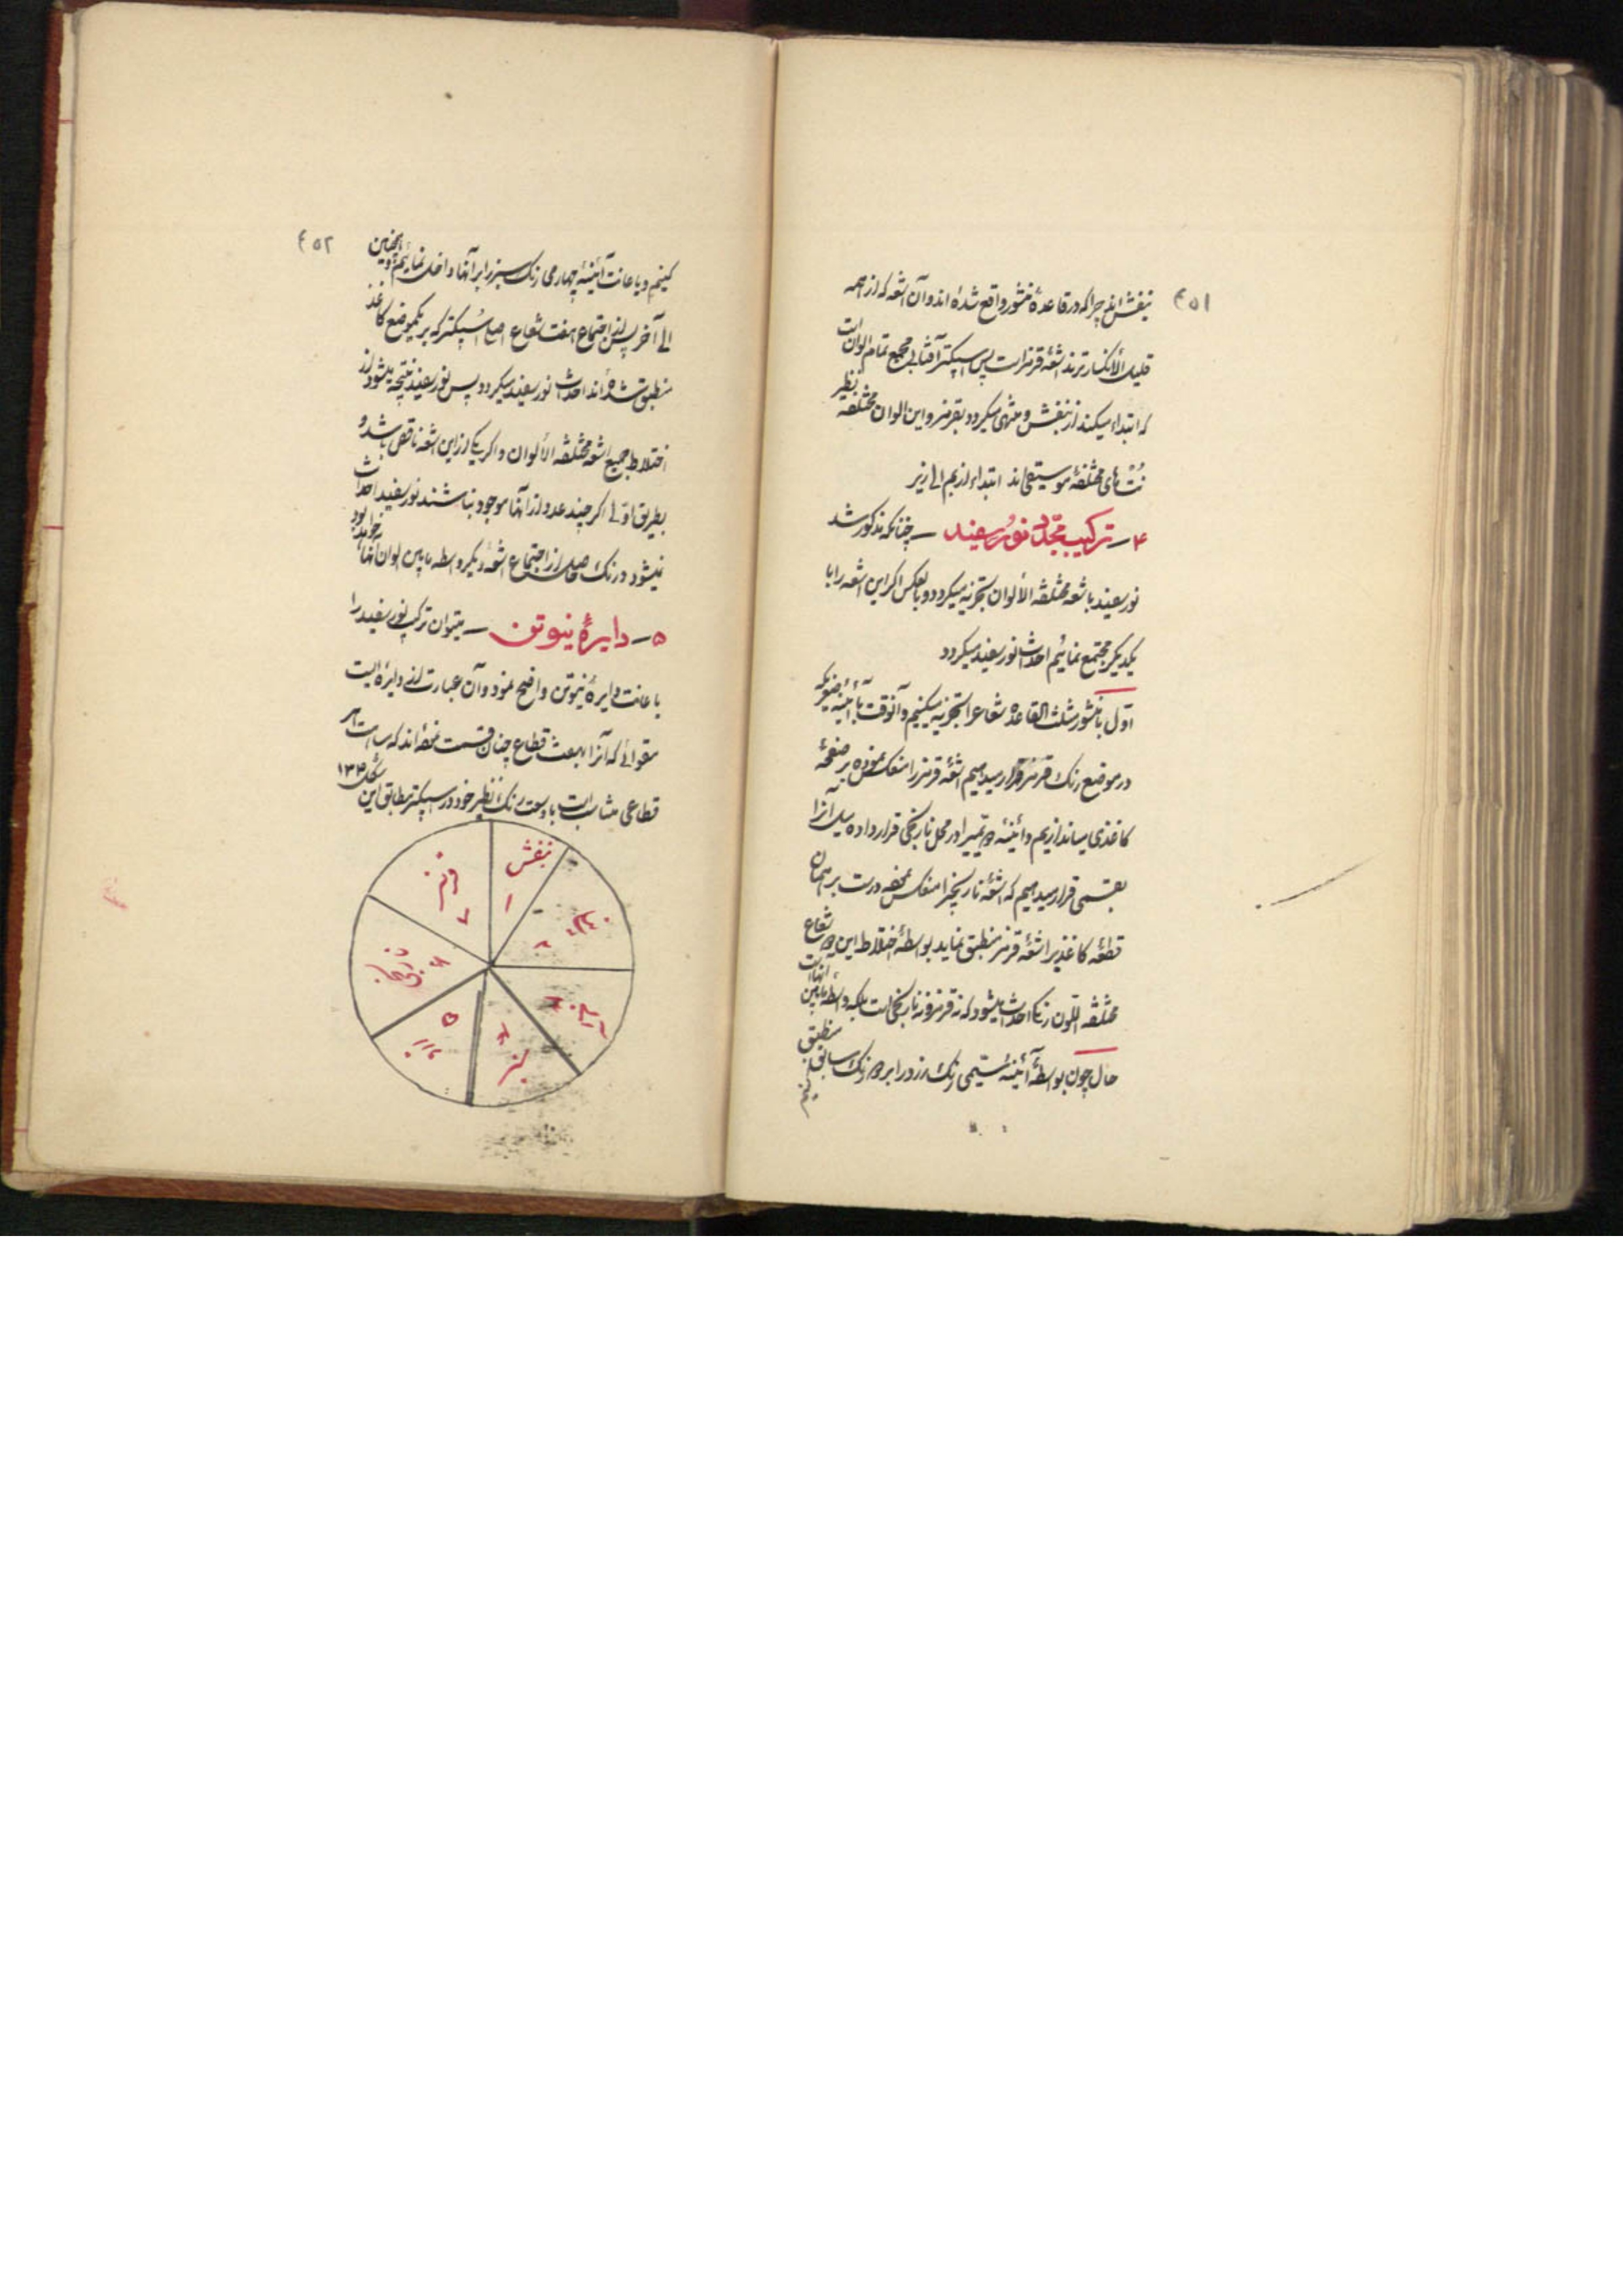 ۴۵۱
بنفش‌اند چرا که در قاعدهٔ منشور واقع شده‌اند و آن اشعه که از همه
قلیل الأنکسارترند اشعهٔ قرمز است پس اسپکتر آفتابی مجمع تمام الوان است
که ابتداء میکند از بنفش و منتهی میگردد بقرمز و این الوان مختلفه نظیر
نُت‌های مختلفهٔ موسیقی‌اند ابتداء از بم الی زیر
۴ــ ترکیب مجدّد نور سفید ــ چنانکه مذکور شد
نور سفید باشعهٔ مختلفة الألوان تجزیه میگردد و بالعکس اگر این اشعه را با
یکدیگر مجتمع نمائیم احداث نور سفید میگردد
اوّل با منشور مثلث القاعده شعاع را تجزیه میکنیم و آنوقت با آئینهٔ
در موضع رنگ قرمز قرار میدهیم اشعهٔ قرمز را منعکس نموده بر صفحهٔ
کاغذی میاندازیم و آئینهٔ دویمی را در محل نارنجی قرار داده
بقسمی قرار میدهیم که اشعهٔ نارنجی را منعکس نموده درست بر همان
قطعه کاغذ بر اشعهٔ قرمز منطبق نماید بواسطهٔ اختلاط این دو شعاع
مختلفة اللّون رنگی احداث میشود که نه قرمز و نه نارنجی است بلکه واسطهٔ مابین آنها است
حال چون بواسطهٔ آئینهٔ سیّمی رنگ زرد را بر دو رنگ سابق منطبق
۴۵۲
کنیم و باعانت آئینهٔ چهارمی رنگ سبز را بر آنها داخل نمائیم و همچنین
الی آخر پس از اجتماع هفت شعاع اصلی اسپکتر که بر یکموضع کاغذ
منطبق شده‌اند احداث نور سفید میگردد پس نور سفید نتیجه میشود از
اختلاط جمیع اشعهٔ مختلفة الألوان و اگر یکی از این اشعه ناقص باشد و
بطریق اولی اگر چند عدد از آنها موجود نباشند نور سفید احداث
نمیشود و رنگ حاصل از اجتماع اشعهٔ دیگر واسطهٔ مابین الوان آنها خواهد بود
۵ــ دایرهٔ نیوتن ــ میتوان ترکیب نور سفید را
باعانت دایرهٔ نیوتن واضح نمود و آن عبارت از دایره ایست
مقوائی که آنرا بهفت قطاع چنان قسمت نموده‌اند که مساحت هر
قطاعی متناسب است با وسعت رنگ نظیر خود در اسپکتر مطابق این شکل ۱۳۴
بنفش
۱
نیلی
۲
آبی
۳
سبز
۴
زرد
۵
نارنجی
۶
قرمز
۷